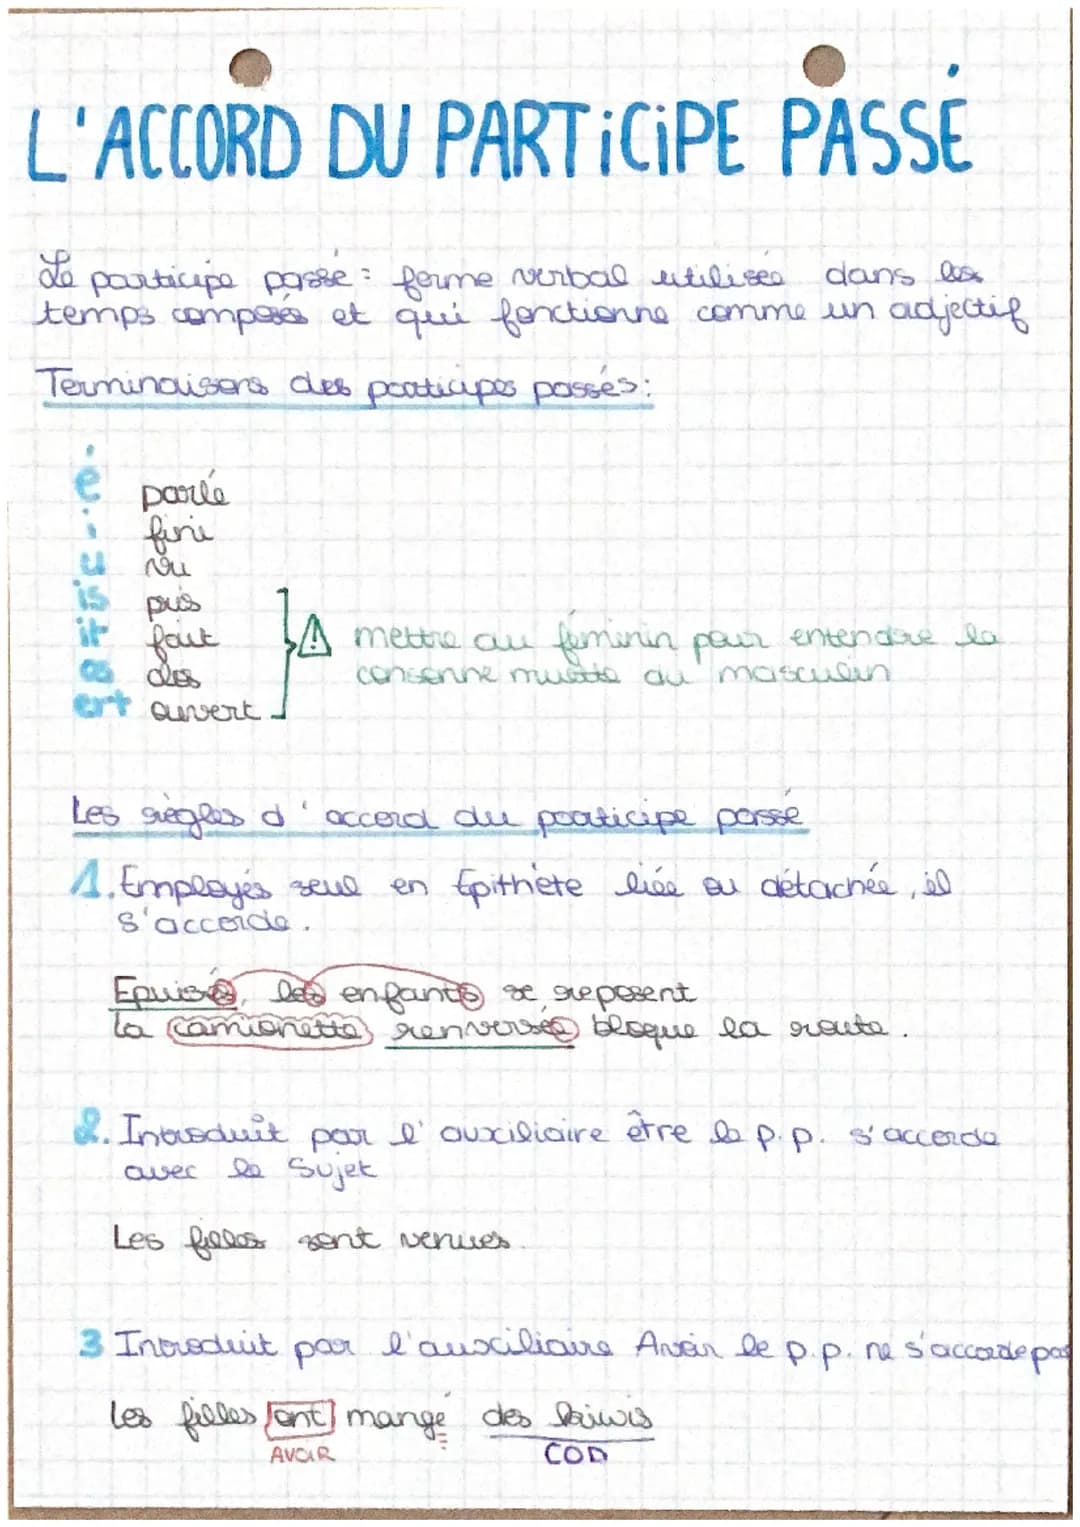 L'ACCORD DU PARTICIPE PASSÉ
Le participe passé : forme verbal utilisée dans les
temps composés et qui fonctionne comme un adjectif
Terminaisons des participes passés :
é parlé
i fini
u vu
is pris
it fait
os clos
ert ouvert
mettre au féminin pour entendre la
consonne muette au masculin
Les règles d'accord du participe passé
1. Employés seul en Épithète liée ou détachée, il
s'accorde.
Epuisés, les enfants se reposent
La camionette renversée bloque la route.
2. Introduit par l'auxiliaire être le p.p. s'accorde
avec le Sujet
Les filles sont venues.
3 Introduit par l'auxiliaire Avoir le p.p. ne s'accorde pas
Les filles ont mangé des kiwis
AVOIR COD